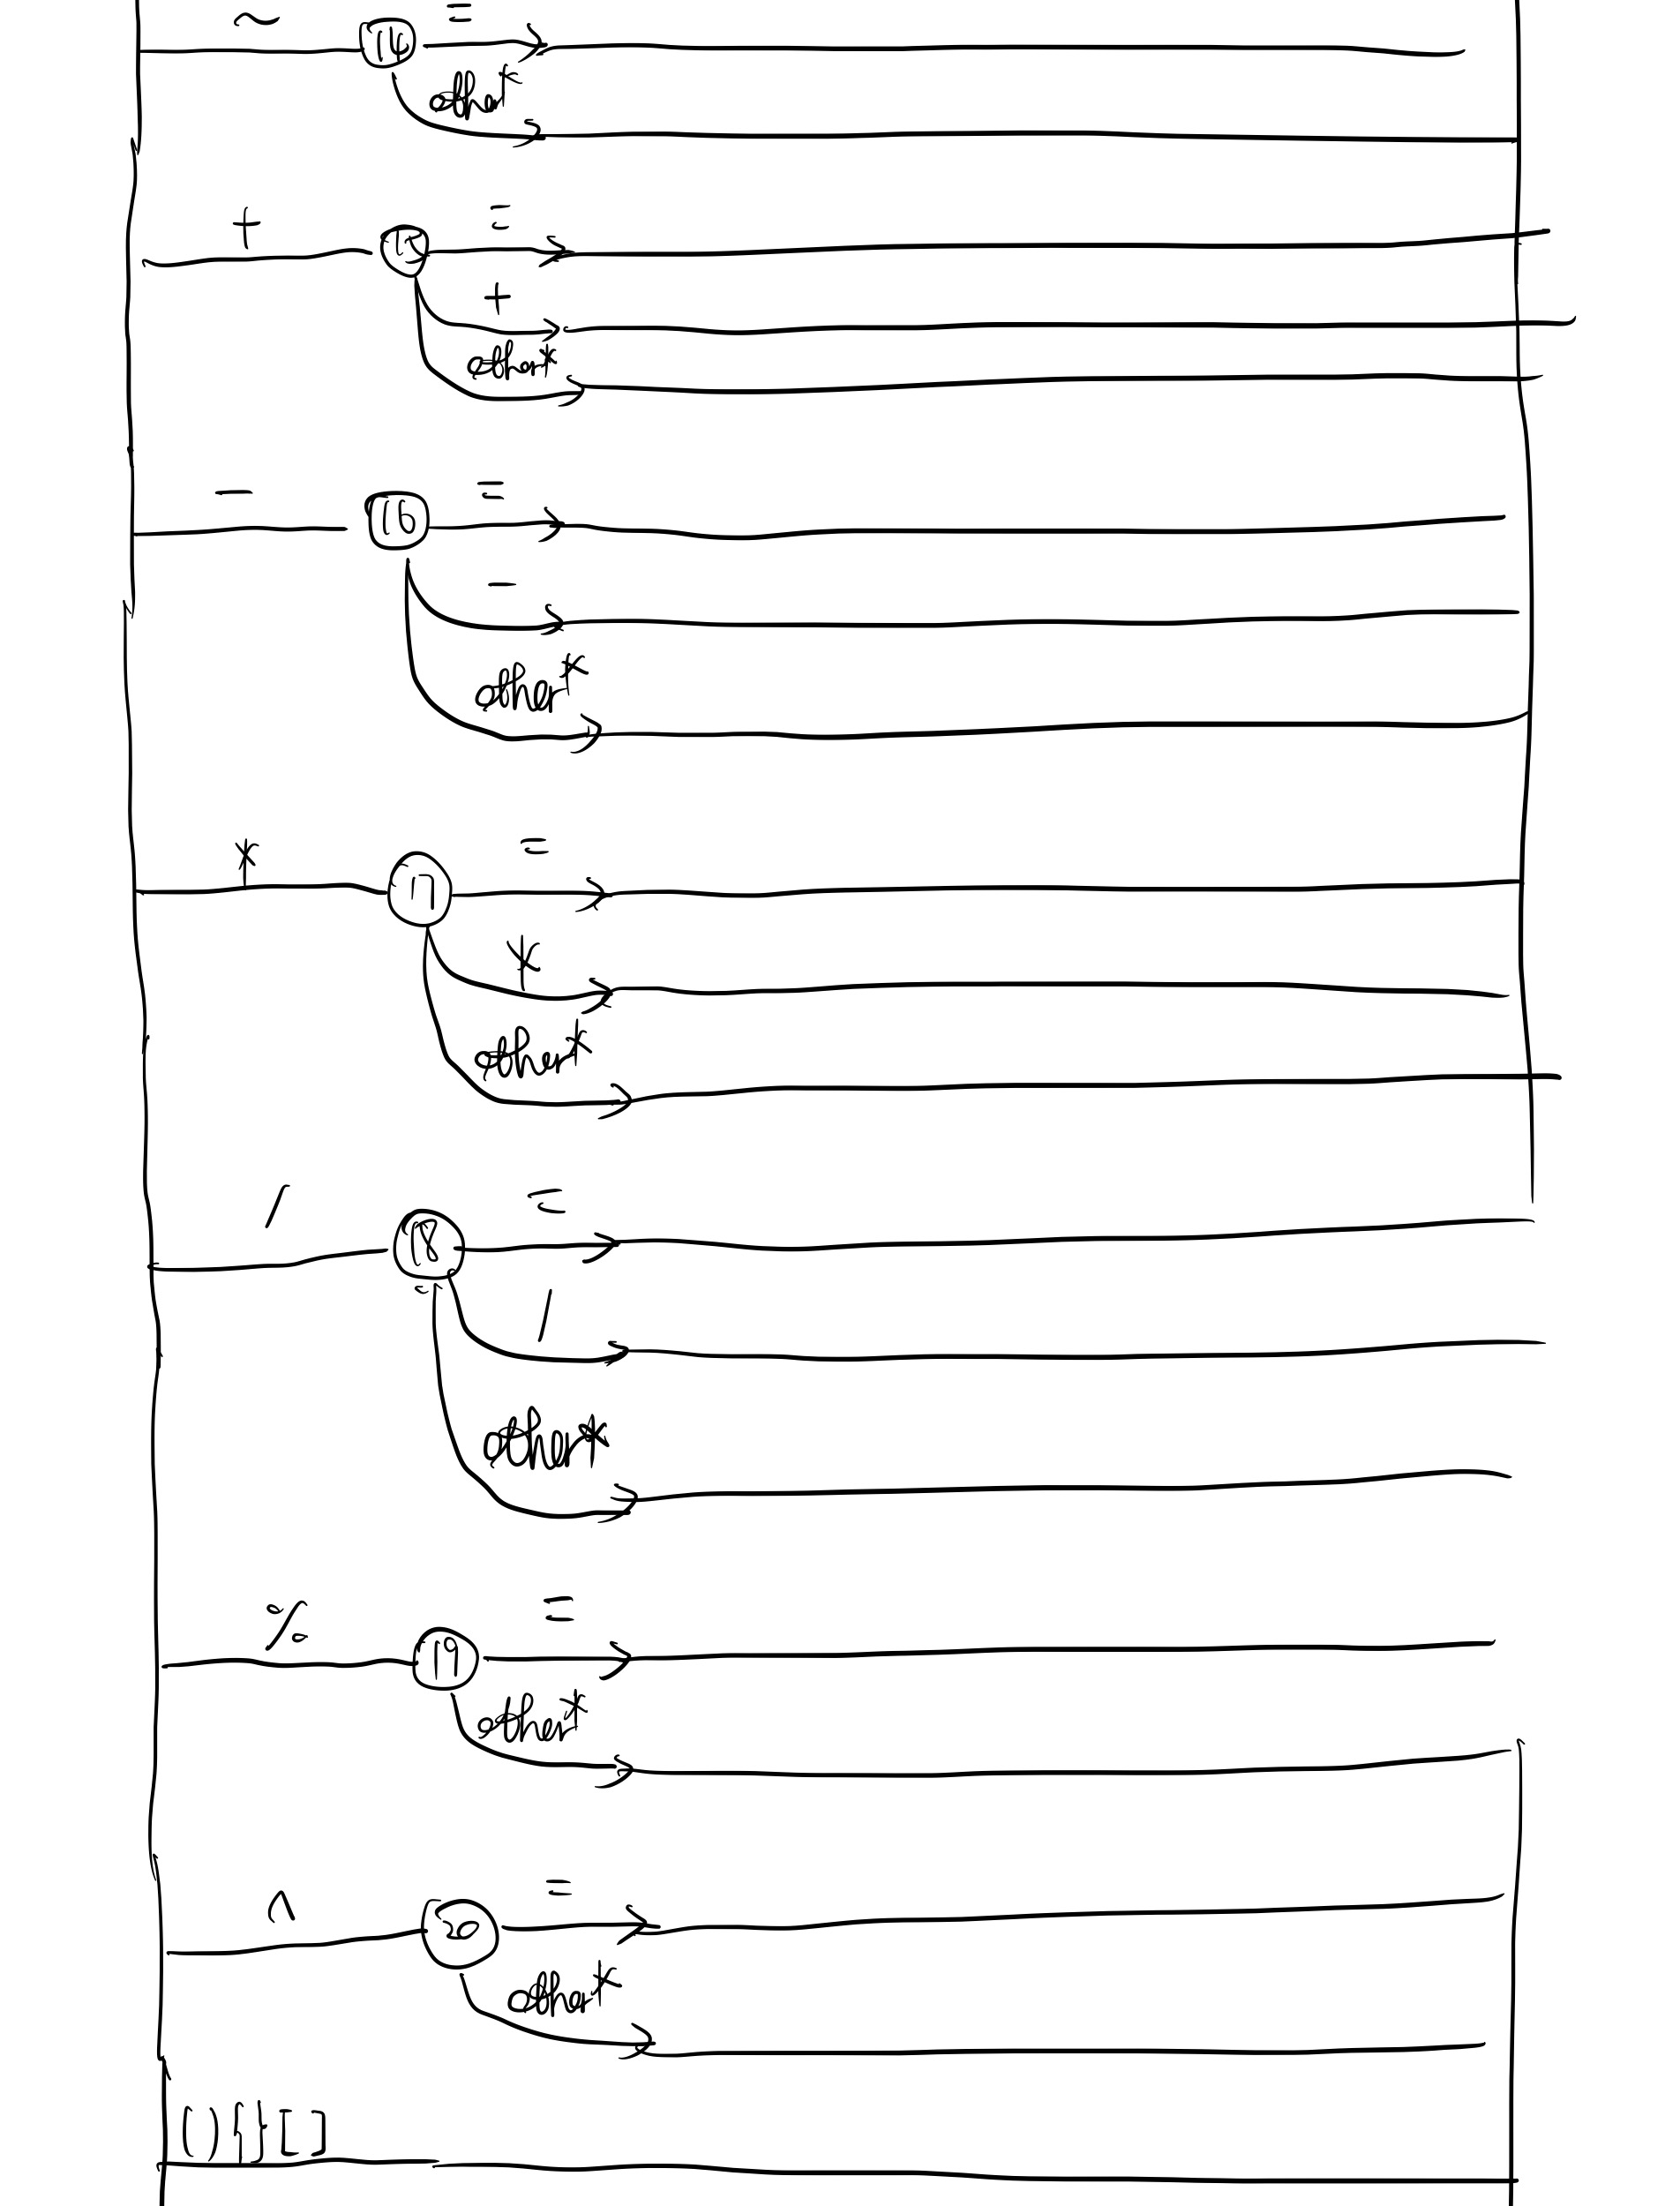 ~ 14 =
other*
+ 15 =
+
other*
- 16 =
-
other*
* 17 =
*
other*
/ 18 =
/
other*
% 19 =
other*
^ 20 =
other*
( ) { } [ ]